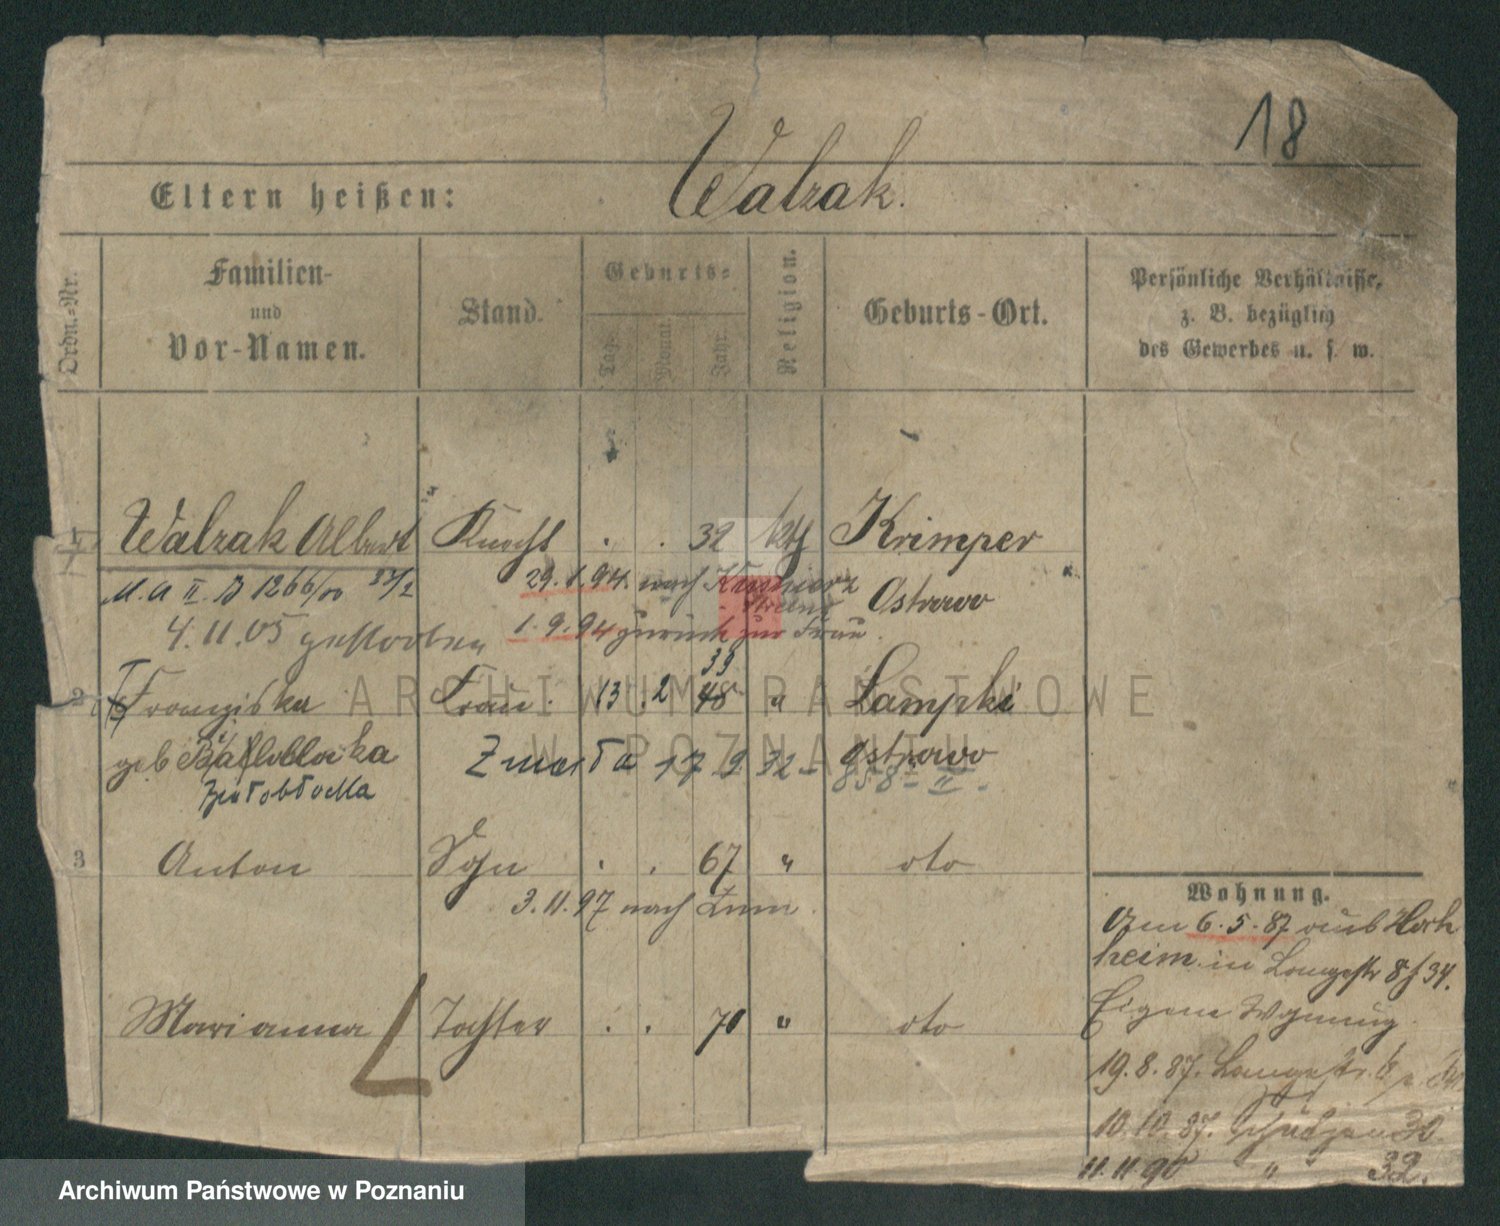 18
Eltern heißen: Walzak.
Ordn.-Nr.
Familien- und Vor-Namen.
Stand.
Geburts-
Tag. Monat. Jahr.
Religion.
Geburts-Ort.
Persönliche Verhältnisse, z. B. bezüglich des Gewerbes u. s. w.
1 Walzak Albert Knecht . . 32 kth Krimper
M. A II. B 1266/00
29.1.94. nach
Ostrowo
4.11.05 gestorben
1.9.94 zurück zur Frau.
39
2 Franziska Frau. 13 . 2 48 " Lampki
geb
Zmarła 17 9 32 - Ostrowo
858 - II -
3 Anton Sohn . . 67 " dto
3.11.97 nach
Marianna Tochter . . 70 " dto
Wohnung.
Am 6.5.87 aus Hoch
heim in Langestr 8 f 34.
Eigene Wohnung
19.8.87. Langestr.
10.10.87. Schützen 30.
11.11 90 " " 32.
ARCHIWUM PAŃSTWOWE
W POZNANIU
Archiwum Państwowe w Poznaniu